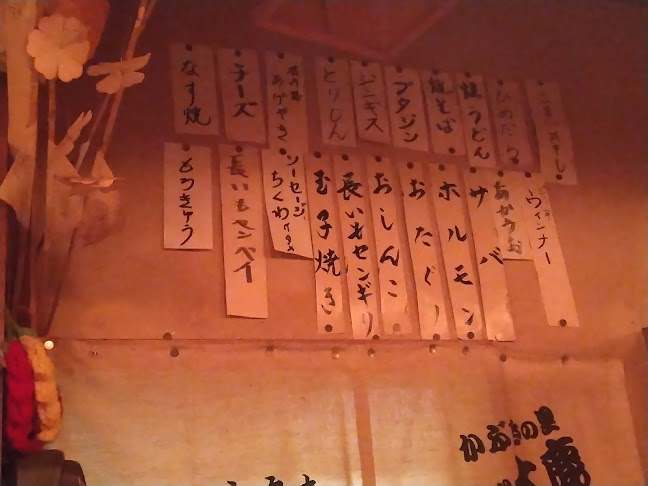 ひめだら
焼うどん
焼そば
ブタジン
ジンギス
とりじん
あげやき
チーズ
なす焼
ウィンナー
あかうお
サバ
ホルモン
おたぐり
おしんこ
長いもセンギリ
玉子焼き
ソーセージ
ちくわ
長いもセンベイ
もろきゅう
かぶきの里